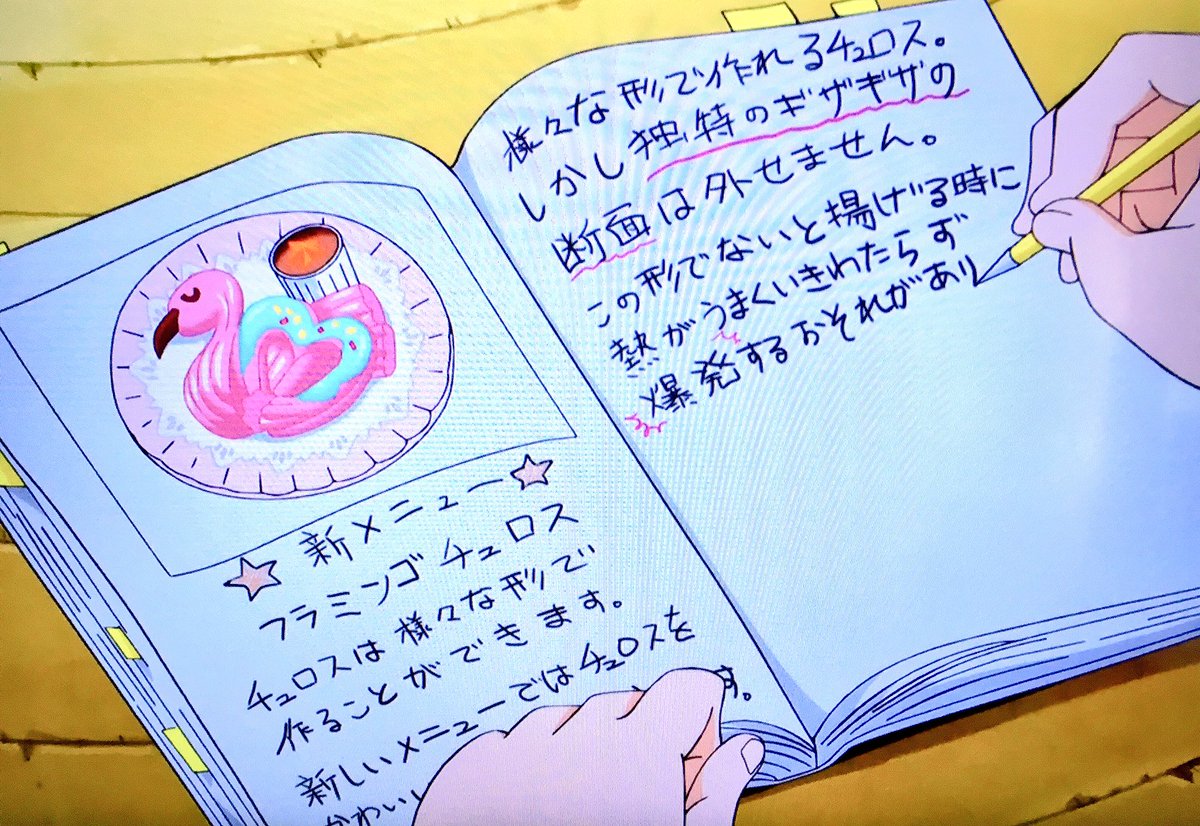 ☆新メニュー☆
フラミンゴチュロス
チュロスは様々な形で
作ることができます。
新しいメニューではチュロスを
かわいい
す。
様々な形で作れるチュロス。
しかし独特のギザギザの
断面は外せません。
この形でないと揚げる時に
熱がうまくいきわたらず
爆発するおそれがあり